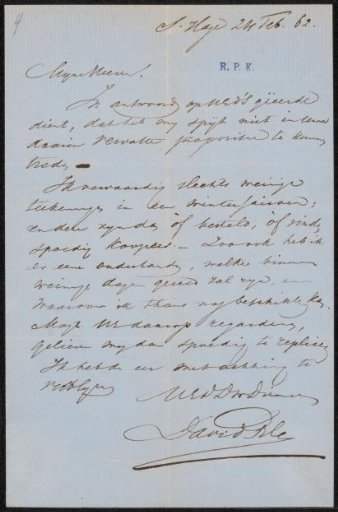 4
S. Hage 24 Feb. 62.
R. P. K.
Mijne Heeren,
In antwoord op UEd's geëerde
dient, dat het my spijt niet in eene
daarin vervatte propositie te kunnen
treden
Ik vervaardig slechts weinige
teekeningen in een winterseizoen;
en deze zijn dan of besteld, of vinden
spoedig koopers – Zoo ook heb ik
er eene onderhands, welke binnen
weinige dagen gereed zal zijn, en
waarover ik thans nog beschikken kan.
Mogt UE daarop regarderen,
gelieve my dan spoedig te repliceren
Ik heb de eer met achting te
verblyven
UEd Dw Dienaar
David Bles